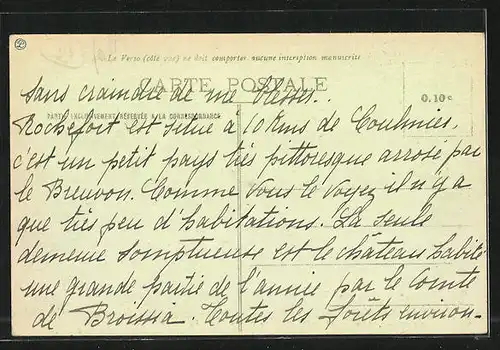 Le Verso (côté vue) ne doit comporter aucune inscription manuscrite
CARTE POSTALE
0.10 c
PARTIE EXCLUSIVEMENT RÉSERVÉE A LA CORRESPONDANCE
Sans craindre de me
Rochefort est situé à 10 Kms de Coulmier,
c'est un petit pays très pittoresque arrosé par
le Brevon. Comme vous le voyez il n'y a
que très peu d'habitations. La seule
demeure somptueuse est le château habité
une grande partie de l'année par le Comte
de Broissia. Toutes les forêts environ-